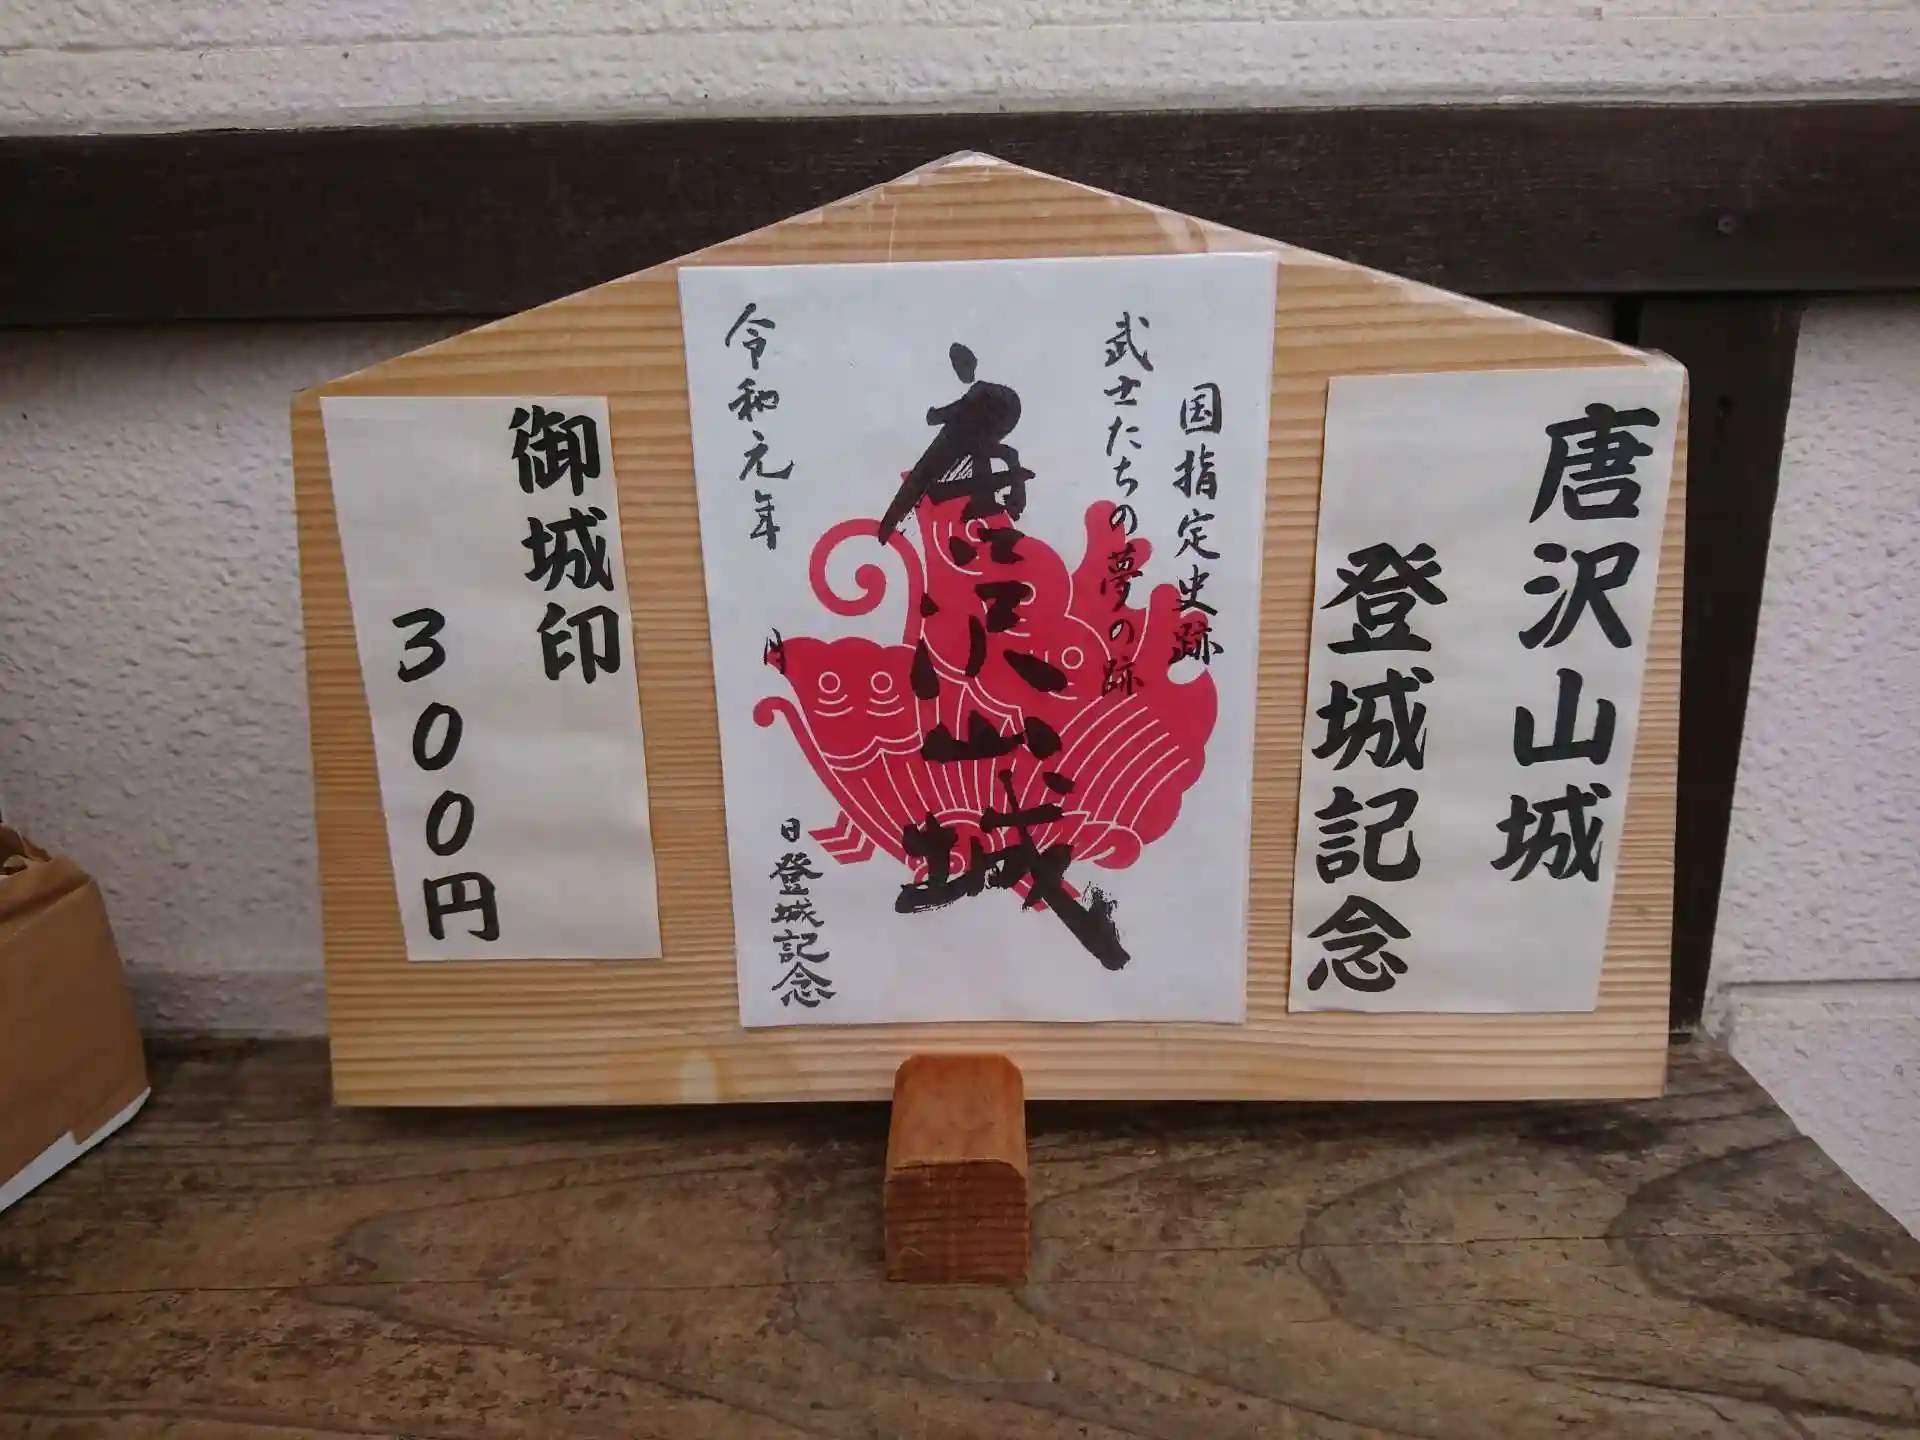 唐沢山城
登城記念
国指定史跡
武士たちの夢の跡
唐沢山城
令和元年　月　日登城記念
御城印
３００円